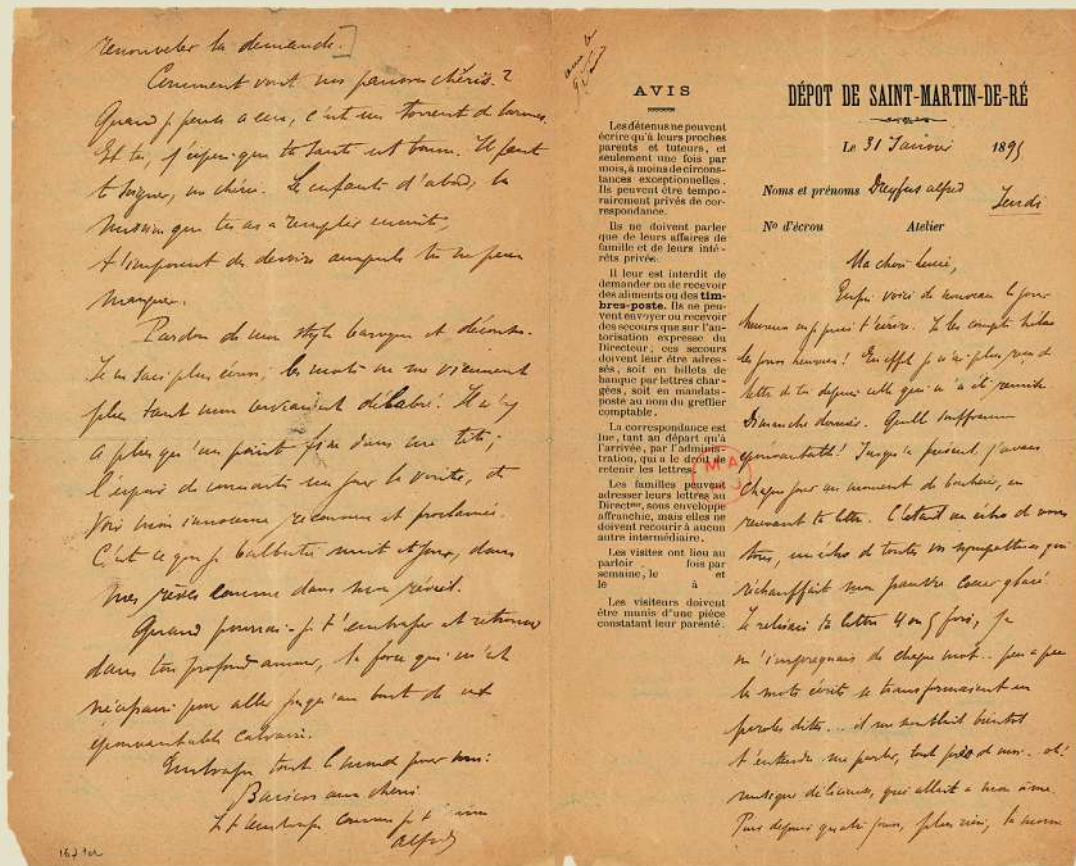 renouveler la demande.]
Comment vont nos pauvres chéris ?
Quand je pense à eux, c'est un torrent de larmes.
Et toi, j'espère que ta santé est bonne. Il faut
te soigner, ma chérie. Les enfants d'abord, la
mission que tu as à remplir ensuite,
t'imposent des devoirs auxquels tu ne peux
manquer.
Pardon de mon style baroque et décousu.
Je ne sais plus écrire, les mots ne me viennent
plus tant mon cerveau est délabré. Il n'y
a plus qu'un point fixe dans ma tête ;
l'espoir de connaître un jour la vérité, de
voir mon innocence reconnue et proclamée.
C'est ce que je balbutie nuit et jour, dans
mes rêves comme dans mon réveil.
Quand pourrai-je t'embrasser et retrouver
dans ton profond amour, la force qui m'est
nécessaire pour aller jusqu'au bout de cet
épouvantable calvaire.
Embrasse tout le monde pour moi.
Baisers aux chéris
Je t'embrasse comme je t'aime
Alfred
AVIS
Les détenus ne peuvent
écrire qu'à leurs proches
parents et tuteurs, et
seulement une fois par
mois, à moins de circons-
tances exceptionnelles.
Ils peuvent être tempo-
rairement privés de cor-
respondance.
Ils ne doivent parler
que de leurs affaires de
famille et de leurs inté-
rêts privés.
Il leur est interdit de
demander ou de recevoir
des aliments ou des tim-
bres-poste. Ils ne peu-
vent envoyer ou recevoir
des secours que sur l'au-
torisation expresse du
Directeur ; ces secours
doivent leur être adres-
sés, soit en billets de
banque par lettres char-
gées, soit en mandats-
poste au nom du greffier
comptable.
La correspondance est
lue, tant au départ qu'à
l'arrivée, par l'adminis-
tration, qui a le droit de
retenir les lettres.
Les familles peuvent
adresser leurs lettres au
Directeur, sous enveloppe
affranchie, mais elles ne
doivent recourir à aucun
autre intermédiaire.
Les visites ont lieu au
parloir fois par
semaine, le et
le à
Les visiteurs doivent
être munis d'une pièce
constatant leur parenté.
DÉPOT DE SAINT-MARTIN-DE-RÉ
Le 31 Janvier 1895
Noms et prénoms Dreyfus alfred
Jeudi
No d'écrou Atelier
Ma chère Lucie,
Enfin voici de nouveau le jour
heureux où je puis t'écrire. Je les compte hélas
les jours heureux ! En effet je n'ai plus reçu de
lettre de toi depuis celle qui m'a été remise
Dimanche dernier. Quelle souffrance
épouvantable ! Jusqu'à présent, j'avais
chaque jour un moment de bonheur, en
recevant ta lettre. C'était un écho de vous
tous, un écho de toutes vos sympathies qui
réchauffait mon pauvre cœur glacé.
Je relisais ta lettre 4 ou 5 fois, je
m'imprégnais de chaque mot.. peu à peu
les mots écrits se transformaient en
paroles dites... il me semblait bientôt
t'entendre me parler, tout près de moi. oh !
musique délicieuse, qui allait à mon âme.
Puis depuis quatre jours, plus rien, la morne
MA